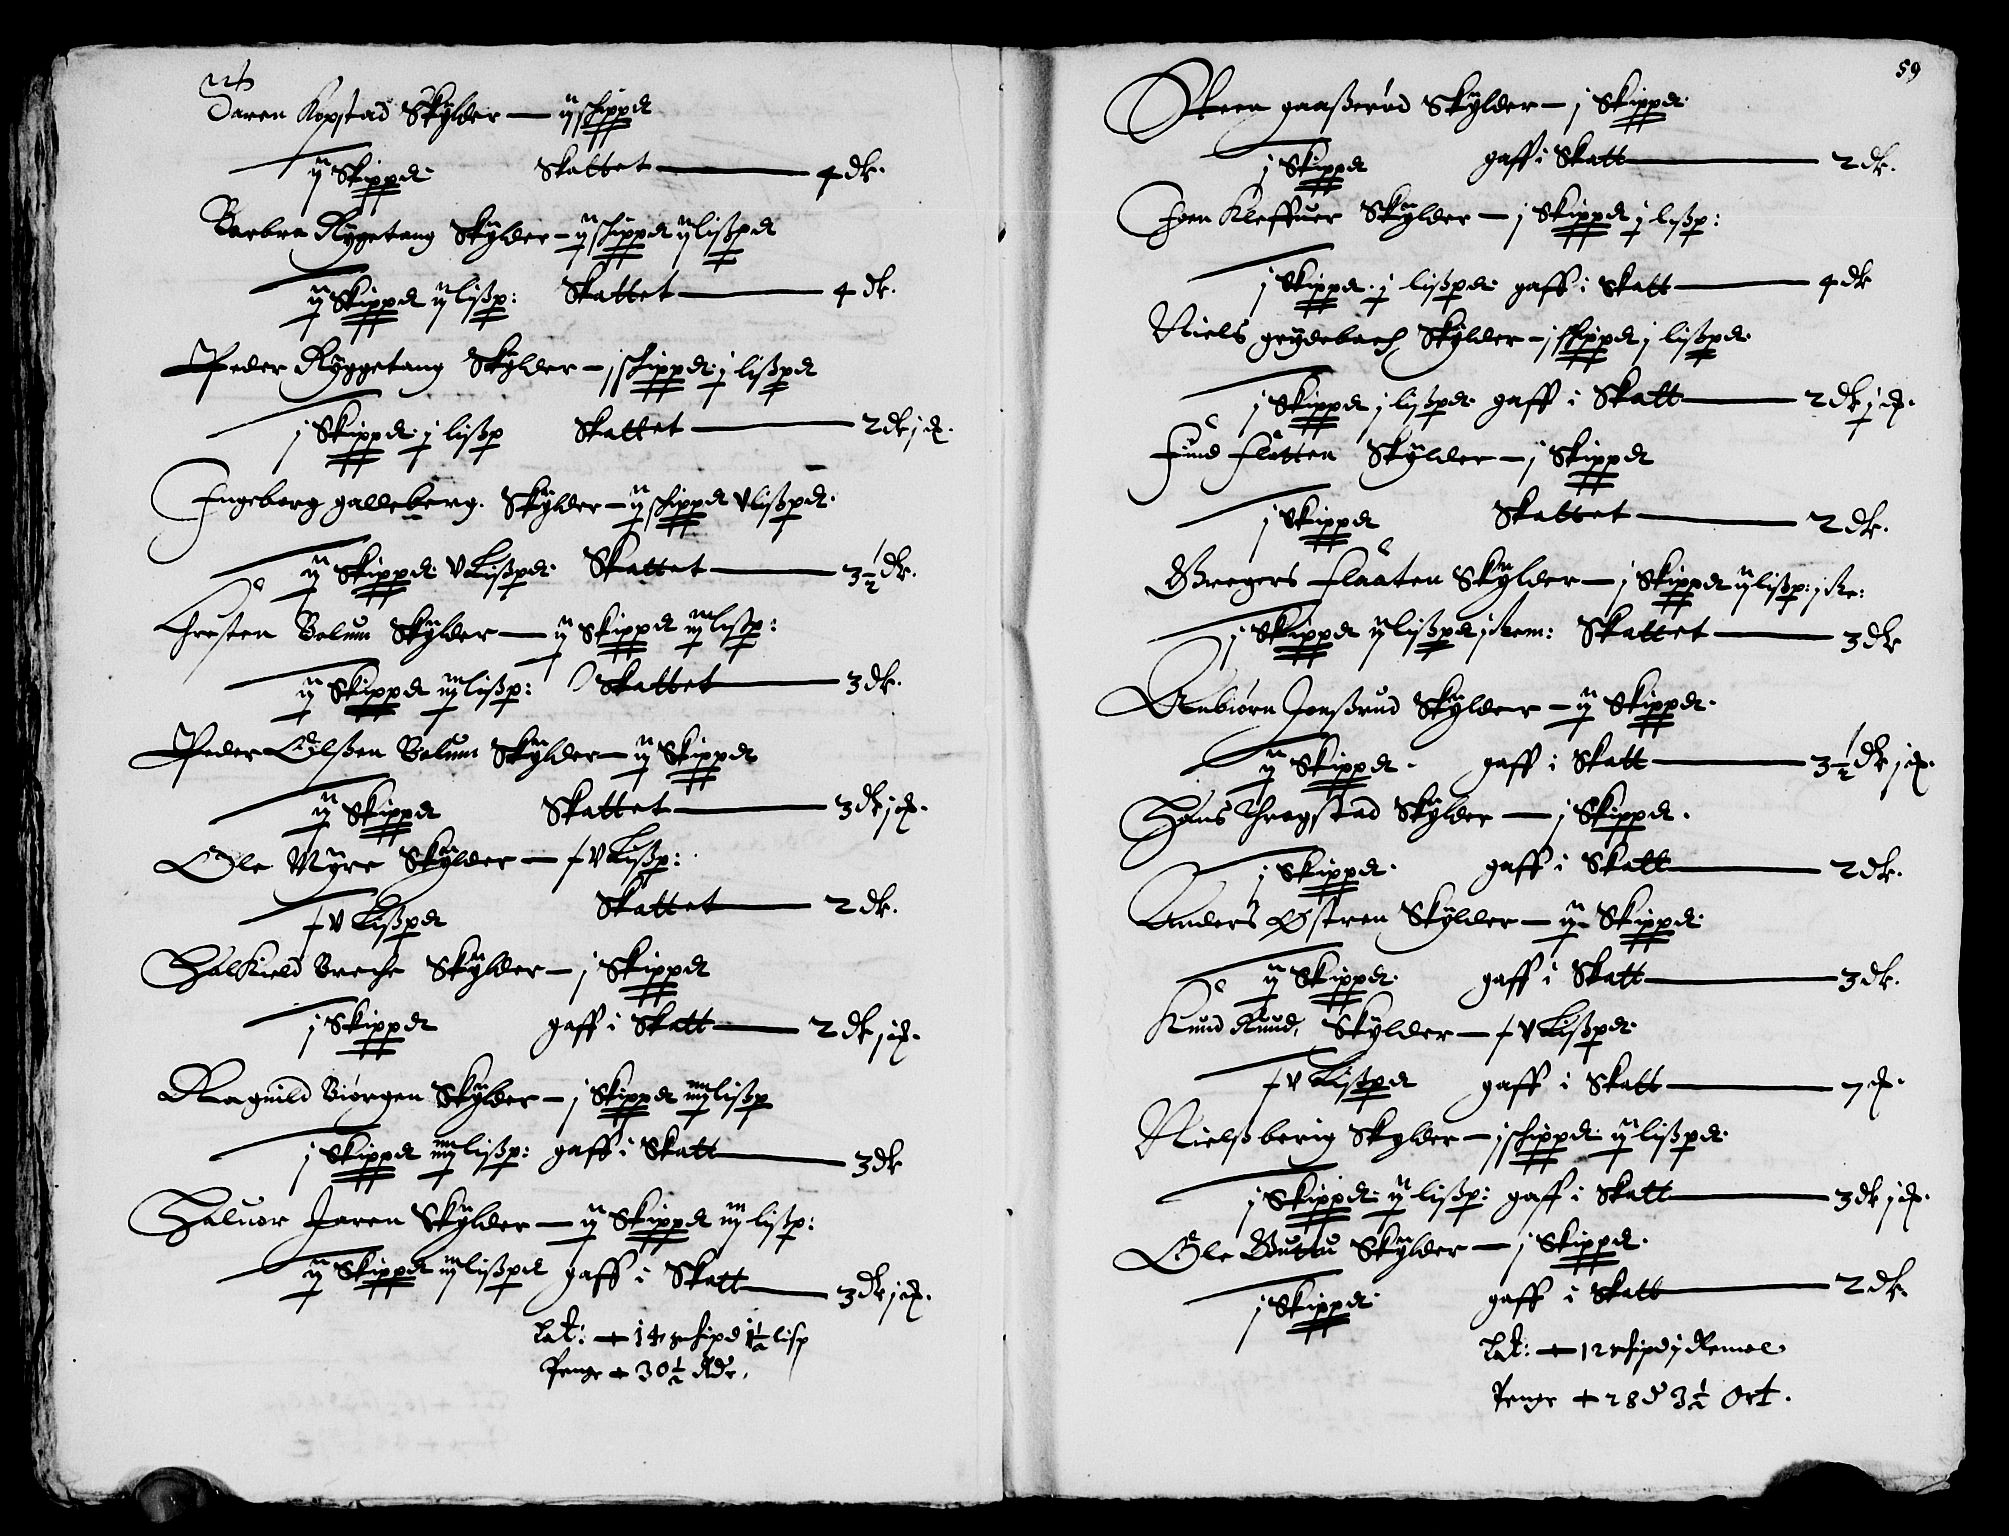 Daren Kopstad Skÿlder — ij schippd
ij Skippd. Skattet — 4 dlr.
Barbra Rÿgetang Skÿlder — ij schippd ij lißpd
ij Skippd ij lißp: Skattet — 4 dlr.
Peder Rÿggetang Skÿlder — j schippd: j lißpd
j Skippd. j lißp Skattet — 2 dlr j ort.
Ingeborg galleberg. Skÿlder — ij schippd v lißpd.
ij Skippd. v Lißpd. Skattet — 3½ dlr.
Christen Bolum Skÿlder — ij Skippd iij lißp:
ij Skippd iij lißp: Skattet — 3 dlr.
Peder Olßen Bolum Skÿlder — ij Skippd
ij Skippd Skattet — 3 dlr j ort.
Ole Mÿre Skÿlder — xv Lißp:
xv Lißpd Skattet — 2 dlr.
Halkield Breche Skÿlder — j Skippd
j Skippd gaff i Skatt — 2 dlr j ort.
Ragnild Biørgen Skÿlder — j Skippd iiij lißp
j Skippd iiij lißp: gaff i Skatt — 3 dlr
Haluor Jaren Skÿlder — ij Skippd iij lißp:
ij Skippd iij lißpd gaff i Skatt — 3 dlr j ort.
Lat: + 14 schipd 1½ lisp
Penge + 30½ Rdr.
59
Steen gaaßerud Skÿlder — j Skippd.
j Skippd gaff i Skatt — 2 dlr.
Joen Kleffuer Skÿlder — j Skippd j lißp:
j Skippd. j lißpd. gaff i Skatt — 4 dlr
Niels grÿdebach Skÿlder — j schippd j lißpd.
j Skippd j lißpd. gaff i Skatt — 2 dlr j ort.
Jund flotten Skÿlder — j Skippd
j Skippd Skattet — 2 dlr.
Gregers flaaten Skÿlder — j Skippd ij lißp: j Re:
j Skippd ij lißpd j Rem: Skattet — 3 dlr
Anbiørn Jonßrud Skÿlder — ij Skippd.
ij Skippd. gaff i Skatt — 3½ dlr j ort.
Hans Throgstad Skÿlder — j Skippd.
j Skippd. gaff i Skatt — 2 dlr.
Anders Østren Skÿlder — ij Skippd.
ij Skippd. gaff i Skatt — 3 dlr.
Knud Ruud, Skÿlder — xv Lißpd.
xv Lißpd gaff i Skatt — 7 ort.
Nielß berig Skylder — j schippd. ij lißpd.
j Skippd. ij lißp: gaff i Skatt — 3 dlr j ort.
Ole Buttu Skÿlder — j Skippd.
j Skippd. gaff i Skatt — 2 dlr.
Lat: + 12 schipd j Remol.
Penge + 28 d 3½ Ort.